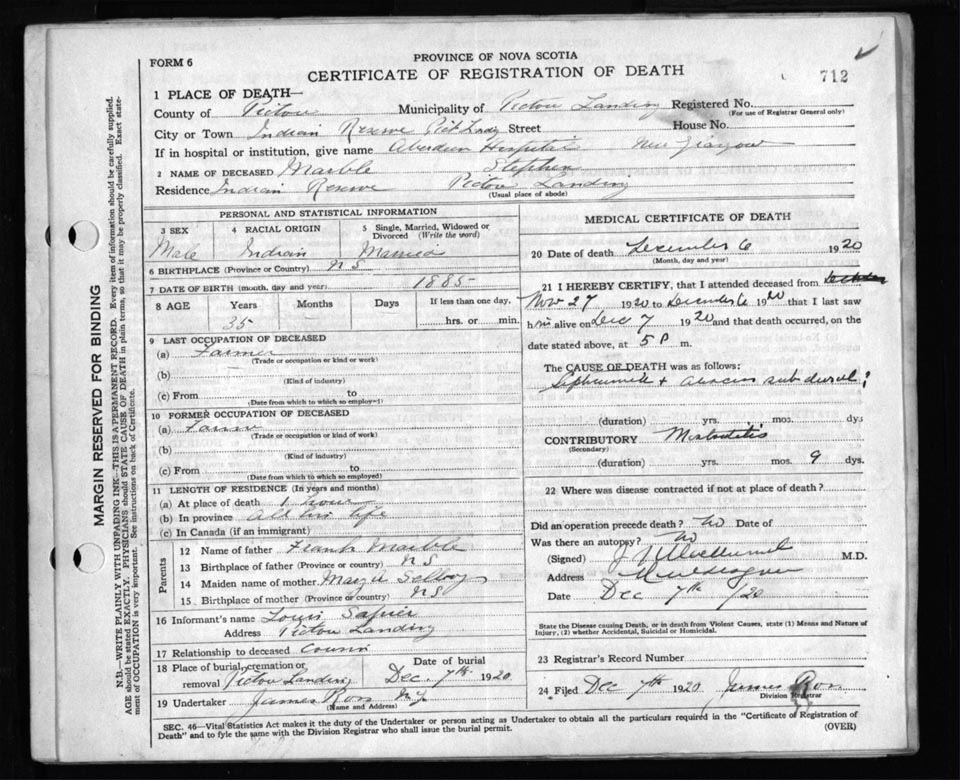 FORM 6
PROVINCE OF NOVA SCOTIA
CERTIFICATE OF REGISTRATION OF DEATH
712
1 PLACE OF DEATH—
County of Pictou Municipality of Pictou Landing Registered No.
(For use of Registrar General only)
City or Town Indian Reserve Pict Landg Street House No.
If in hospital or institution, give name Aberdeen Hospital New Glasgow
2 NAME OF DECEASED Marble Stephen
Residence Indian Reserve Pictou Landing
(Usual place of abode)
PERSONAL AND STATISTICAL INFORMATION
3 SEX
Male
4 RACIAL ORIGIN
Indian
5 Single, Married, Widowed or Divorced (Write the word)
Married
6 BIRTHPLACE (Province or Country) N S
7 DATE OF BIRTH (month, day and year) 1885
8 AGE Years Months Days If less than one day,
35 hrs. or min.
9 LAST OCCUPATION OF DECEASED
(a) Farmer
(Trade or occupation or kind of work)
(b)
(Kind of industry)
(c) From to
(Date from which to which so employed)
10 FORMER OCCUPATION OF DECEASED
(a)
(Trade or occupation or kind of work)
(b)
(Kind of industry)
(c) From to
(Date from which to which so employed)
11 LENGTH OF RESIDENCE (In years and months)
(a) At place of death 1 hour
(b) In province All his life
(c) In Canada (if an immigrant)
Parents
12 Name of father Frank Marble
13 Birthplace of father (Province or country) N S
14 Maiden name of mother
15 Birthplace of mother (Province or country) N S
16 Informant's name Louis Sapier
Address Pictou Landing
17 Relationship to deceased Cousin
18 Place of burial, cremation or removal Pictou Landing Date of burial Dec. 7th 1920
19 Undertaker James Ross N. G.
(Name and Address)
MEDICAL CERTIFICATE OF DEATH
20 Date of death December 6 1920
(Month, day and year)
21 I HEREBY CERTIFY, that I attended deceased from
Nov 27 1920 to December 6 1920 that I last saw
him alive on Dec 7 1920 and that death occurred, on the
date stated above, at 5 P m.
The CAUSE OF DEATH was as follows:
sub dural ?
(duration) yrs. mos. dys
CONTRIBUTORY Mastoiditis
(Secondary)
(duration) yrs. mos. 9 dys.
22 Where was disease contracted if not at place of death?
Did an operation precede death? No Date of
Was there an autopsy? No
(Signed) M.D.
Address
Date Dec 7th /20
State the Disease causing Death, or in death from Violent Causes, state (1) Means and Nature of Injury, (2) whether Accidental, Suicidal or Homicidal.
23 Registrar's Record Number
24 Filed Dec 7th 1920 James Ross
Division Registrar
SEC. 46—Vital Statistics Act makes it the duty of the Undertaker or person acting as Undertaker to obtain all the particulars required in the "Certificate of Registration of
Death" and to fyle the same with the Division Registrar who shall issue the burial permit. (OVER)
MARGIN RESERVED FOR BINDING
N.B.—WRITE PLAINLY WITH UNFADING INK—THIS IS A PERMANENT RECORD. Every item of information should be carefully supplied.
AGE should be stated EXACTLY. PHYSICIANS should STATE CAUSE OF DEATH in plain terms, so that it may be properly classified. Exact state-
ment of OCCUPATION is very important. See instructions on back of Certificate.